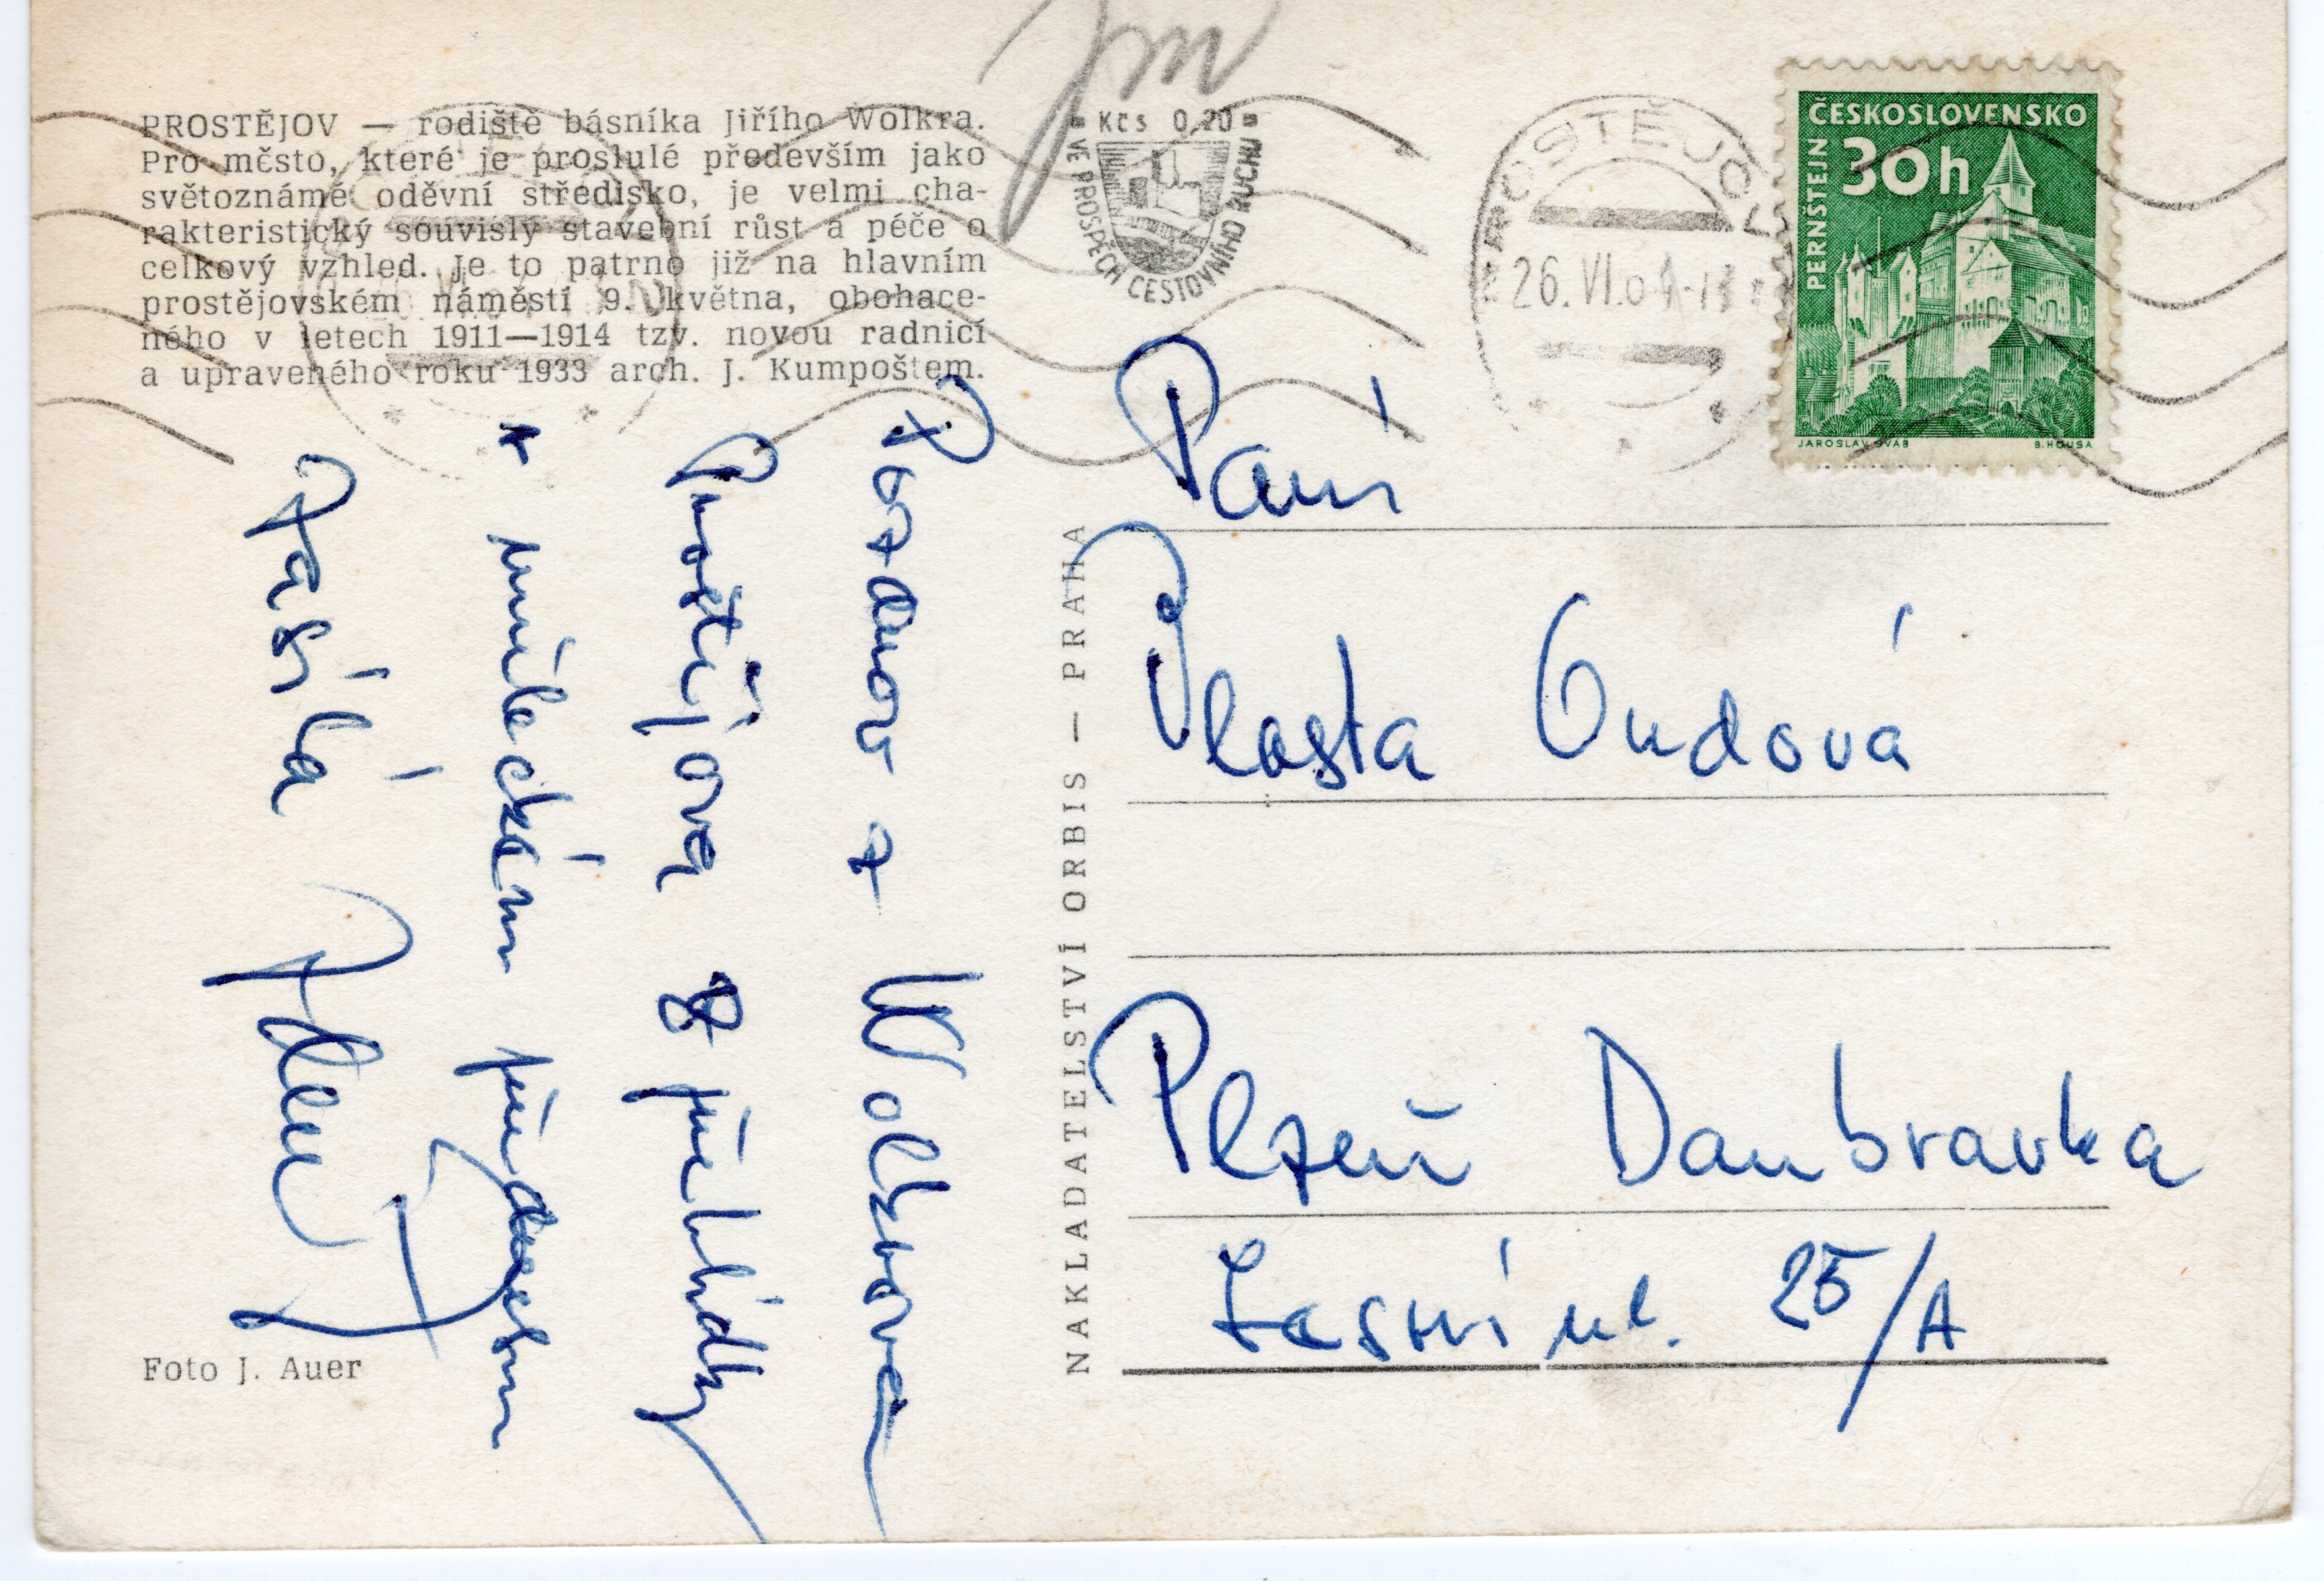 PROSTĚJOV — rodiště básníka Jiřího Wolkra.
Pro město, které je proslulé především jako
světoznámé oděvní středisko, je velmi cha-
rakteristický souvislý stavební růst a péče o
celkový vzhled. Je to patrno již na hlavním
prostějovském náměstí 9. května, obohace-
ného v letech 1911—1914 tzv. novou radnicí
a upraveného roku 1933 arch. J. Kumpoštem.
Kčs 0,20
VE PROSPĚCH CESTOVNÍHO RUCHU
PROSTĚJOV
26.VI.
ČESKOSLOVENSKO
30h
PERNŠTEJN
JAROSLAV ŠVÁB
B. HOUSA
Pozdrav z Wolkrova
Prostějova z přehlídky
Zasílá
NAKLADATELSTVÍ ORBIS — PRAHA
Paní
Vlasta Ondová
Plzeň Doubravka
Lesní ul. 25/A
Foto J. Auer